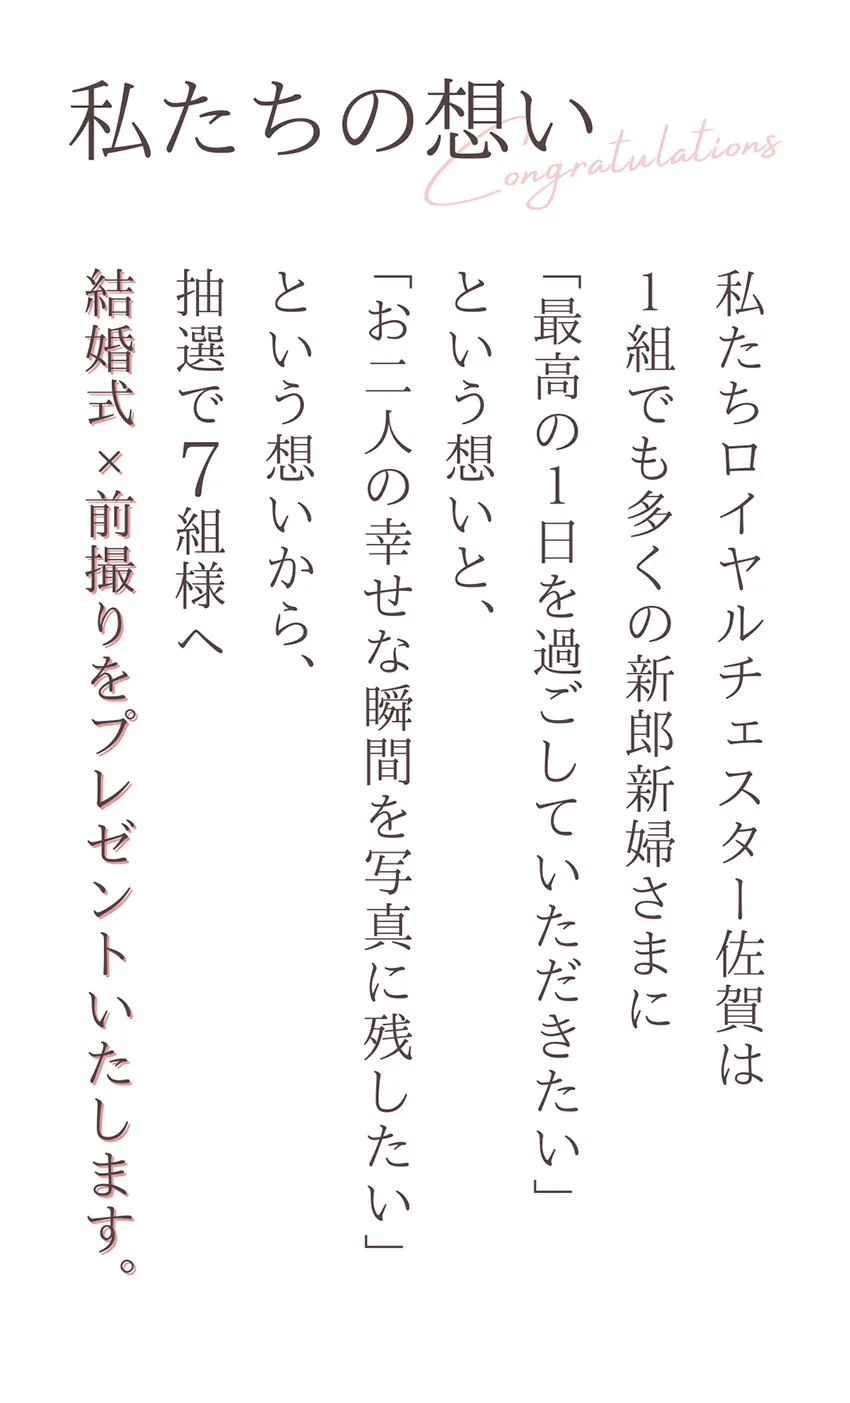 私たちの想い
Congratulations
私たちロイヤルチェスター佐賀は
1組でも多くの新郎新婦さまに
「最高の1日を過ごしていただきたい」
という想いと、
「お二人の幸せな瞬間を写真に残したい」
という想いから、
抽選で7組様へ
結婚式×前撮りをプレゼントいたします。